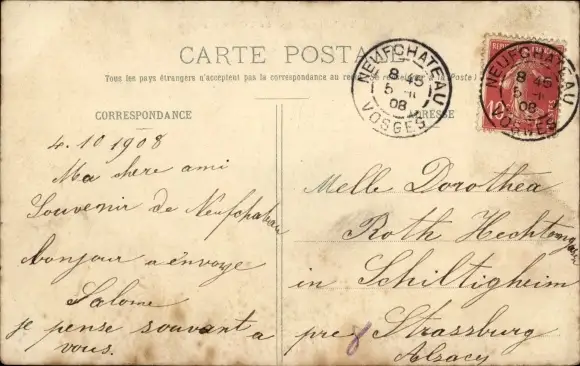 CARTE POSTALE
Tous les pays étrangers n'acceptent pas la correspondance au (Se renseigner à la Poste)
CORRESPONDANCE
ADRESSE
NEUFCHATEAU
8 45
5 -11
08
VOSGES
NEUFCHATEAU
8 45
5 -11
08
VOSGES
10
4.10 1908
Ma chere ami
Souvenir de Neufchateau
bonjour a envoye
Salome
je pense souvant a
vous.
Melle Dorothea
Roth
in Schiltigheim
pres Strassburg
Alsacy